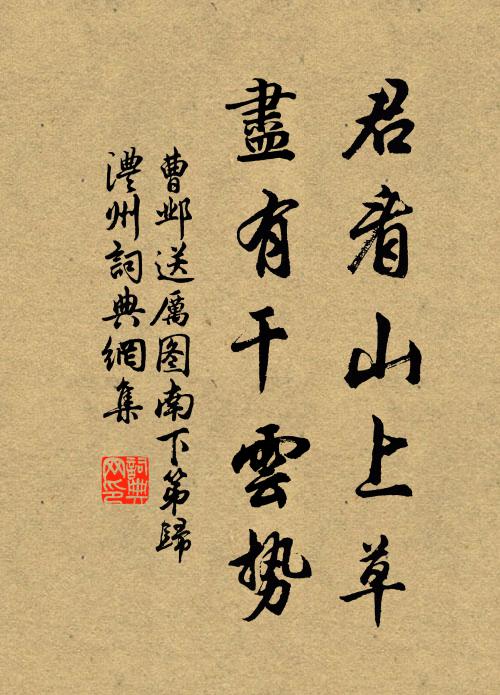 君看山上草
盡有干雲势
曹邺送厲图南下第歸
澧州詞典網集
詞典网印